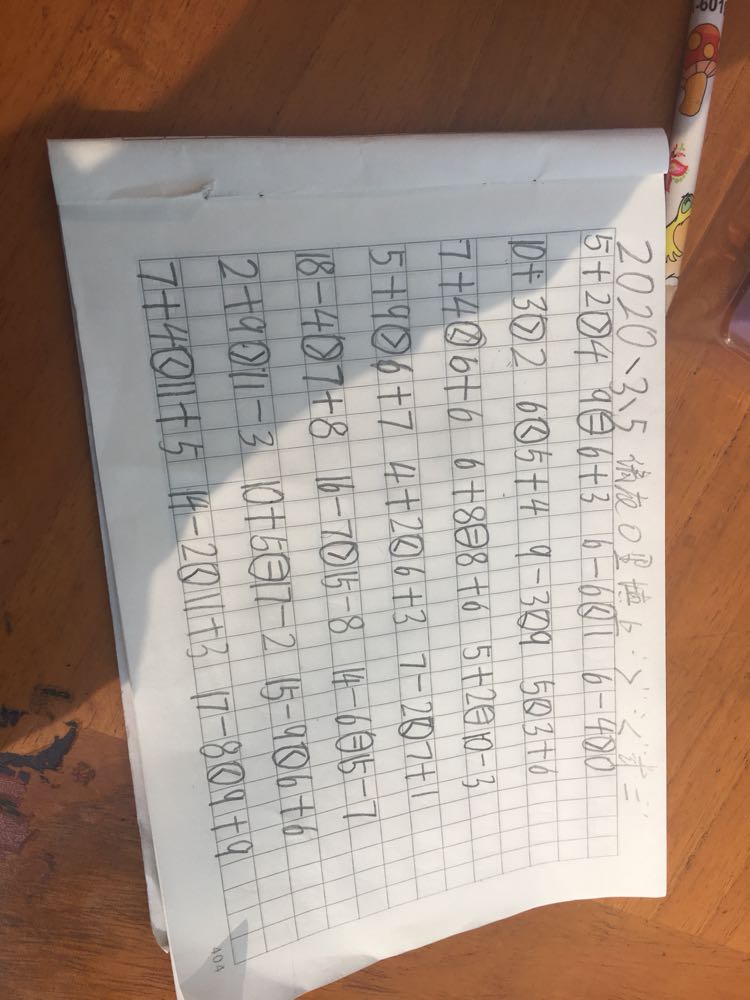 2020、3、5 请在○里填上">""<"或"="
5+2>4 9=6+3 6-6<1 6-4>0
10+3>2 6<5+4 9-3<9 5<3+6
7+4<6+6 6+8=8+6 5+2=10-3
5+9>6+7 4+2<6+3 7-2<7+1
18-4<7+8 16-7>15-8 14-6=15-7
2+9>11-3 10+5=17-2 15-9<6+6
7+4<11+5 14-2<11+3 17-8<9+9
404